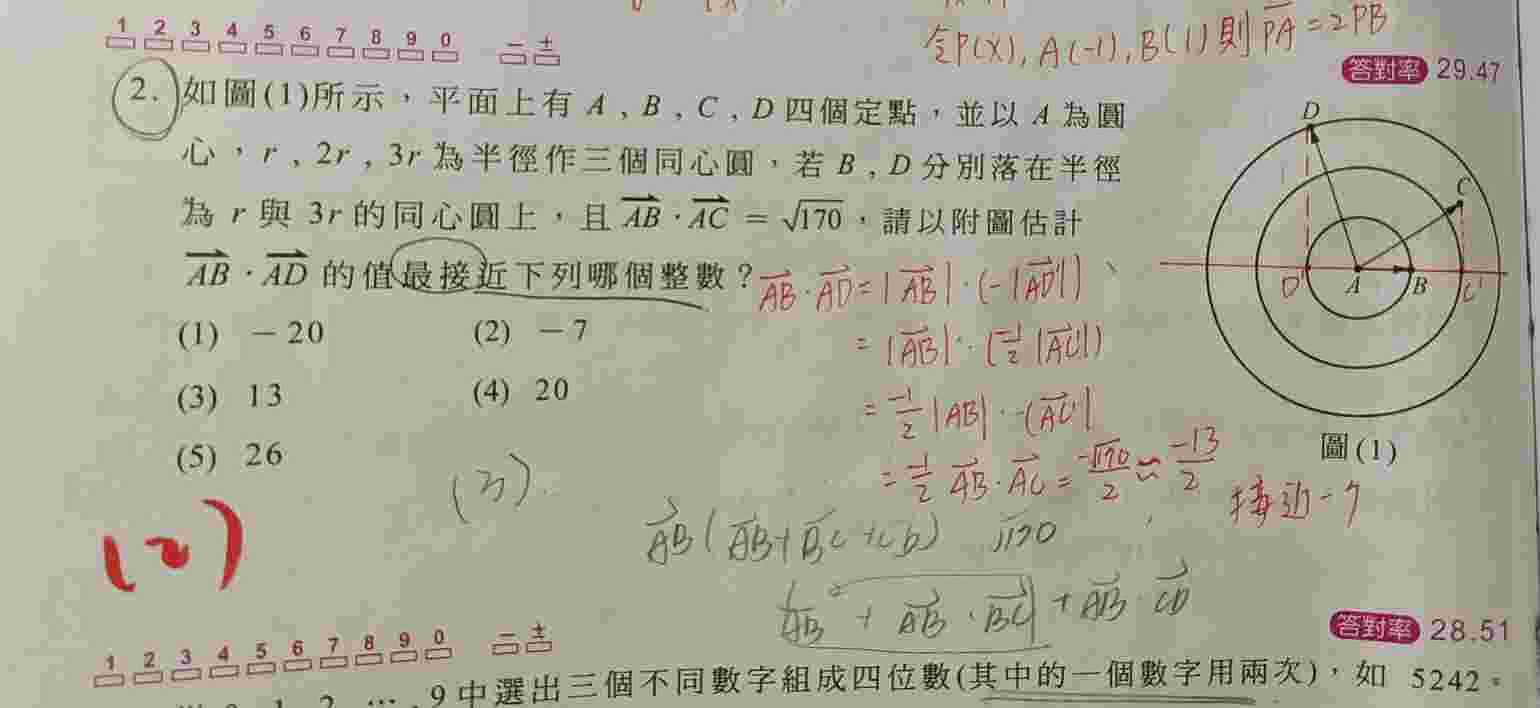 1 2 3 4 5 6 7 8 9 0 − ±
令P(X), A(-1), B(1) 則 PA = 2PB
答對率 29.47
2. 如圖(1)所示，平面上有 A , B , C , D 四個定點，並以 A 為圓
心，r , 2r , 3r 為半徑作三個同心圓，若 B , D 分別落在半徑
為 r 與 3r 的同心圓上，且 AB · AC = √170，請以附圖估計
AB · AD 的值最接近下列哪個整數？
(1) －20 (2) －7
(3) 13 (4) 20
(5) 26
AB · AD = |AB| · (-|AD'|)
= |AB| · (-1/2 |AC'|)
= -1/2 |AB| · |AC'|
= -1/2 AB · AC = -√170/2 ≈ -13/2 接近 -7
D
C
D' A B C'
圖(1)
(3).
(2)
AB(AB+BC+CD) √170
AB² + AB · BC + AB · CD
答對率 28.51
1 2 3 4 5 6 7 8 9 0 − ±
9 中選出三個不同數字組成四位數(其中的一個數字用兩次)，如 5242。